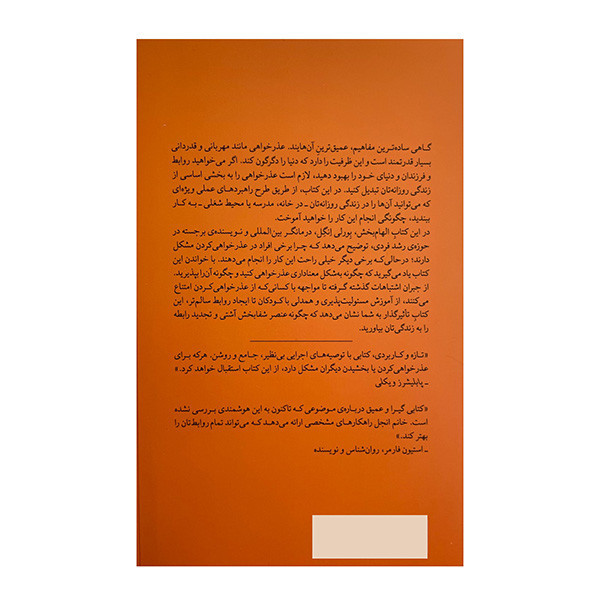 گاهی ساده‌ترین مفاهیم، عمیق‌ترین آن‌هایند. عذرخواهی مانند مهربانی و قدردانی
بسیار قدرتمند است و این ظرفیت را دارد که دنیا را دگرگون کند. اگر می‌خواهید روابط
و فرزندان و دنیای خود را بهبود دهید، لازم است عذرخواهی را به بخشی اساسی از
زندگی روزانه‌تان تبدیل کنید. در این کتاب، از طریق طرح راهبردهای عملی ویژه‌ای
که می‌توانید آن‌ها را در زندگی روزانه‌تان ـ در خانه، مدرسه یا محیط شغلی ـ به کار
بندید، چگونگی انجام این کار را خواهید آموخت.
در این کتاب الهام‌بخش، بورلی اِنگِل، درمانگر بین‌المللی و نویسنده‌ی برجسته در
حوزه‌ی رشد فردی، توضیح می‌دهد که چرا برخی افراد در عذرخواهی‌کردن مشکل
دارند؛ درحالی‌که برخی دیگر خیلی راحت این کار را انجام می‌دهند. با خواندن این
کتاب یاد می‌گیرید که چگونه به‌شکل معناداری عذرخواهی کنید و چگونه آن را بپذیرید.
از جبران اشتباهات گذشته گرفته تا مواجهه با کسانی‌که از عذرخواهی‌کردن امتناع
می‌کنند، از آموزش مسئولیت‌پذیری و همدلی با کودکان تا ایجاد روابط سالم‌تر، این
کتاب تأثیرگذار به شما نشان می‌دهد که چگونه عنصر شفابخش آشتی و تجدید رابطه
را به زندگی‌تان بیاورید.
«تازه و کاربردی، کتابی با توصیه‌های اجرایی بی‌نظیر، جامع و روشن. هرکه برای
عذرخواهی‌کردن یا بخشیدن دیگران مشکل دارد، از این کتاب استقبال خواهد کرد.»
ـ پابلیشرز ویکلی
«کتابی گیرا و عمیق درباره‌ی موضوعی که تاکنون به این هوشمندی بررسی نشده
است. خانم انجل راهکارهای مشخصی ارائه می‌دهد که می‌تواند تمام روابط‌تان را
بهتر کند.»
ـ استیون فارمر، روان‌شناس و نویسنده